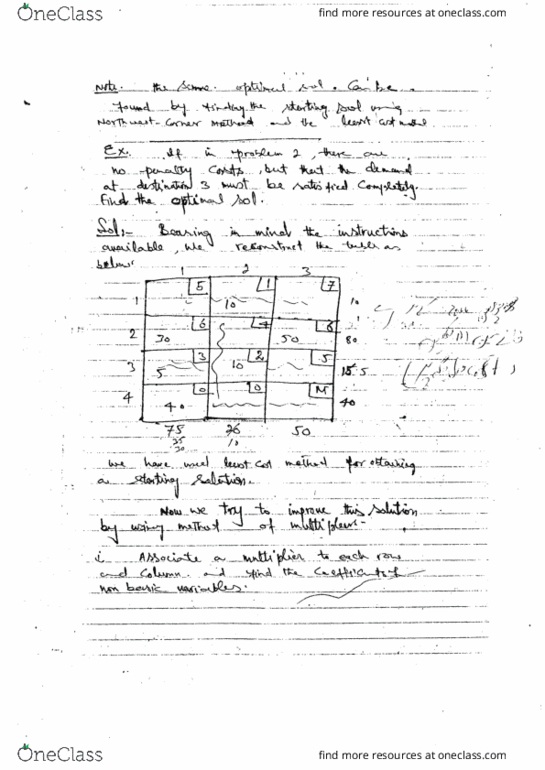 OneClass
find more resources at oneclass.com
Note. the same optimal sol. Can be
found by finding the starting sol using
Northwest-Corner Method and the least cost
Ex. If in problem 2, there are
no penalty costs, but that the demand
at destination 3 must be satisfied completely.
Find the optimal sol.
Sol:- Bearing in mind the instructions
available, we reconstruct the table as
below:
1 2 3
1 5 10 1 7 10
2 30 6 4 50 6 80
3 5 3 10 2 5 15 5
4 40 0 0 M 40
75 20 50
10
we have used least cost method for obtaining
a starting solution.
Now we try to improve this solution
by using method of multipliers-
i. Associate a multiplier to each row
and column and find the Coefficients of
non basic variables.
OneClass
find more resources at oneclass.com